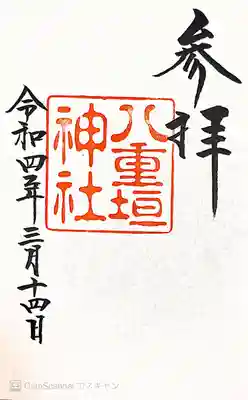 参拝
八重垣
神社
令和四年三月十四日
CamScanner でスキャン